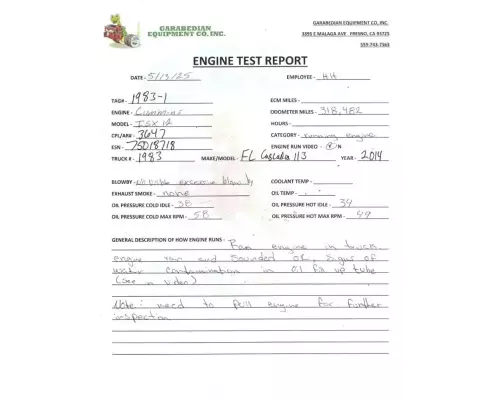 GARABEDIAN
EQUIPMENT CO, INC.
GARABEDIAN EQUIPMENT CO, INC.
3395 E MALAGA AVE FRESNO, CA 93725
559-743-7563
ENGINE TEST REPORT
DATE - 5/13/25 EMPLOYEE - HH
TAG# - 1983-1 ECM MILES -
ENGINE - Cummins ODOMETER MILES - 318,482
MODEL - ISX 12 HOURS -
CPL/AR# - 3647 CATEGORY - running engine
ESN - 75018718 ENGINE RUN VIDEO - Y N
TRUCK # - 1983 MAKE/MODEL - FL Cascadia 113 YEAR - 2014
BLOWBY - No Visible excessive blow by COOLANT TEMP -
EXHAUST SMOKE - none OIL TEMP -
OIL PRESSURE COLD IDLE - 38 OIL PRESSURE HOT IDLE - 34
OIL PRESSURE COLD MAX RPM - 58 OIL PRESSURE HOT MAX RPM - 49
GENERAL DESCRIPTION OF HOW ENGINE RUNS - Ran engine in truck
engine ran and sounded OK, Signs of
water contamination in oil fill up tube
(See in video)
Note: need to pull engine for further
inspection